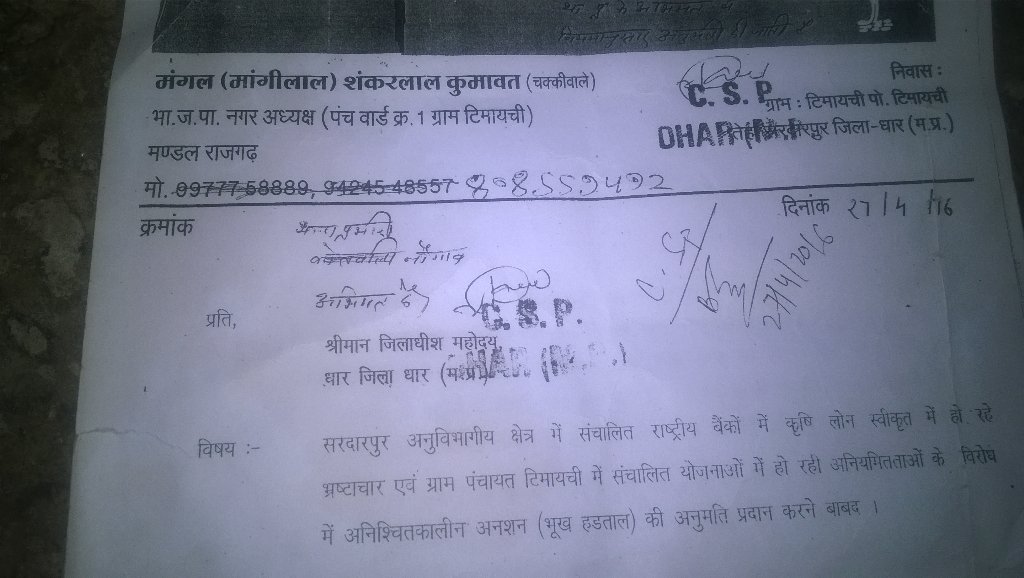 मंगल (मांगीलाल) शंकरलाल कुमावत (चक्कीवाले)
निवास :
भा.ज.पा. नगर अध्यक्ष (पंच वार्ड क्र. 1 ग्राम टिमायची)
C. S. P.
ग्राम : टिमायची पो. टिमायची
मण्डल राजगढ़
DHAR (M.P.)
जिला-धार (म.प्र.)
मो. 09777 58889, 94245 48557
क्रमांक
दिनांक 27/4/16
27/4/2016
C. S. P.
प्रति,
श्रीमान जिलाधीश महोदय,
धार जिला धार (म.प्र.)
विषय :- सरदारपुर अनुविभागीय क्षेत्र में संचालित राष्ट्रीय बैंकों में कृषि लोन स्वीकृत में हो रहे
भ्रष्टाचार एवं ग्राम पंचायत टिमायची में संचालित योजनाओं में हो रही अनियमितताओं के विरोध
में अनिश्चितकालीन अनशन (भूख हडताल) की अनुमति प्रदान करने बाबद ।